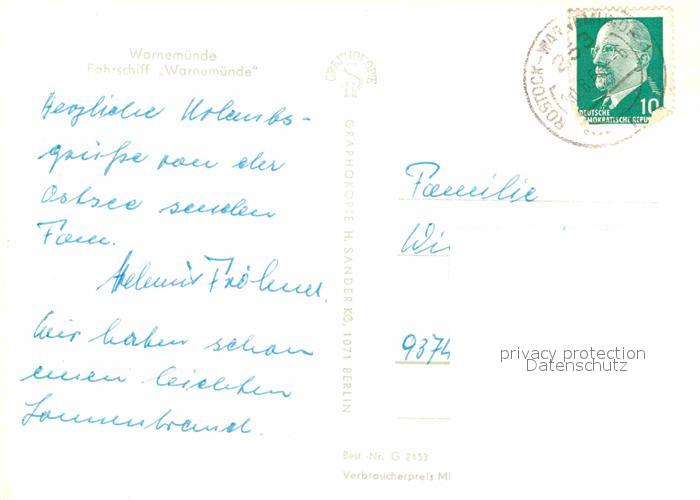 Warnemünde
Fährschiff „Warnemünde"
Herzliche Urlaubs-
grüße von der
Ostsee senden
Fam.
Helmut Fröhner.
Wir haben schon
einen leichten
Sonnenbrand.
GRAPHOKOPIE
GRAPHOKOPIE H. SANDER KG, 1071 BERLIN
Best.-Nr. G 2453
Verbraucherpreis M
ROSTOCK-WARNEMÜNDE
10
DEUTSCHE
DEMOKRATISCHE REPU
Familie
Wi
9374
privacy protection
Datenschutz